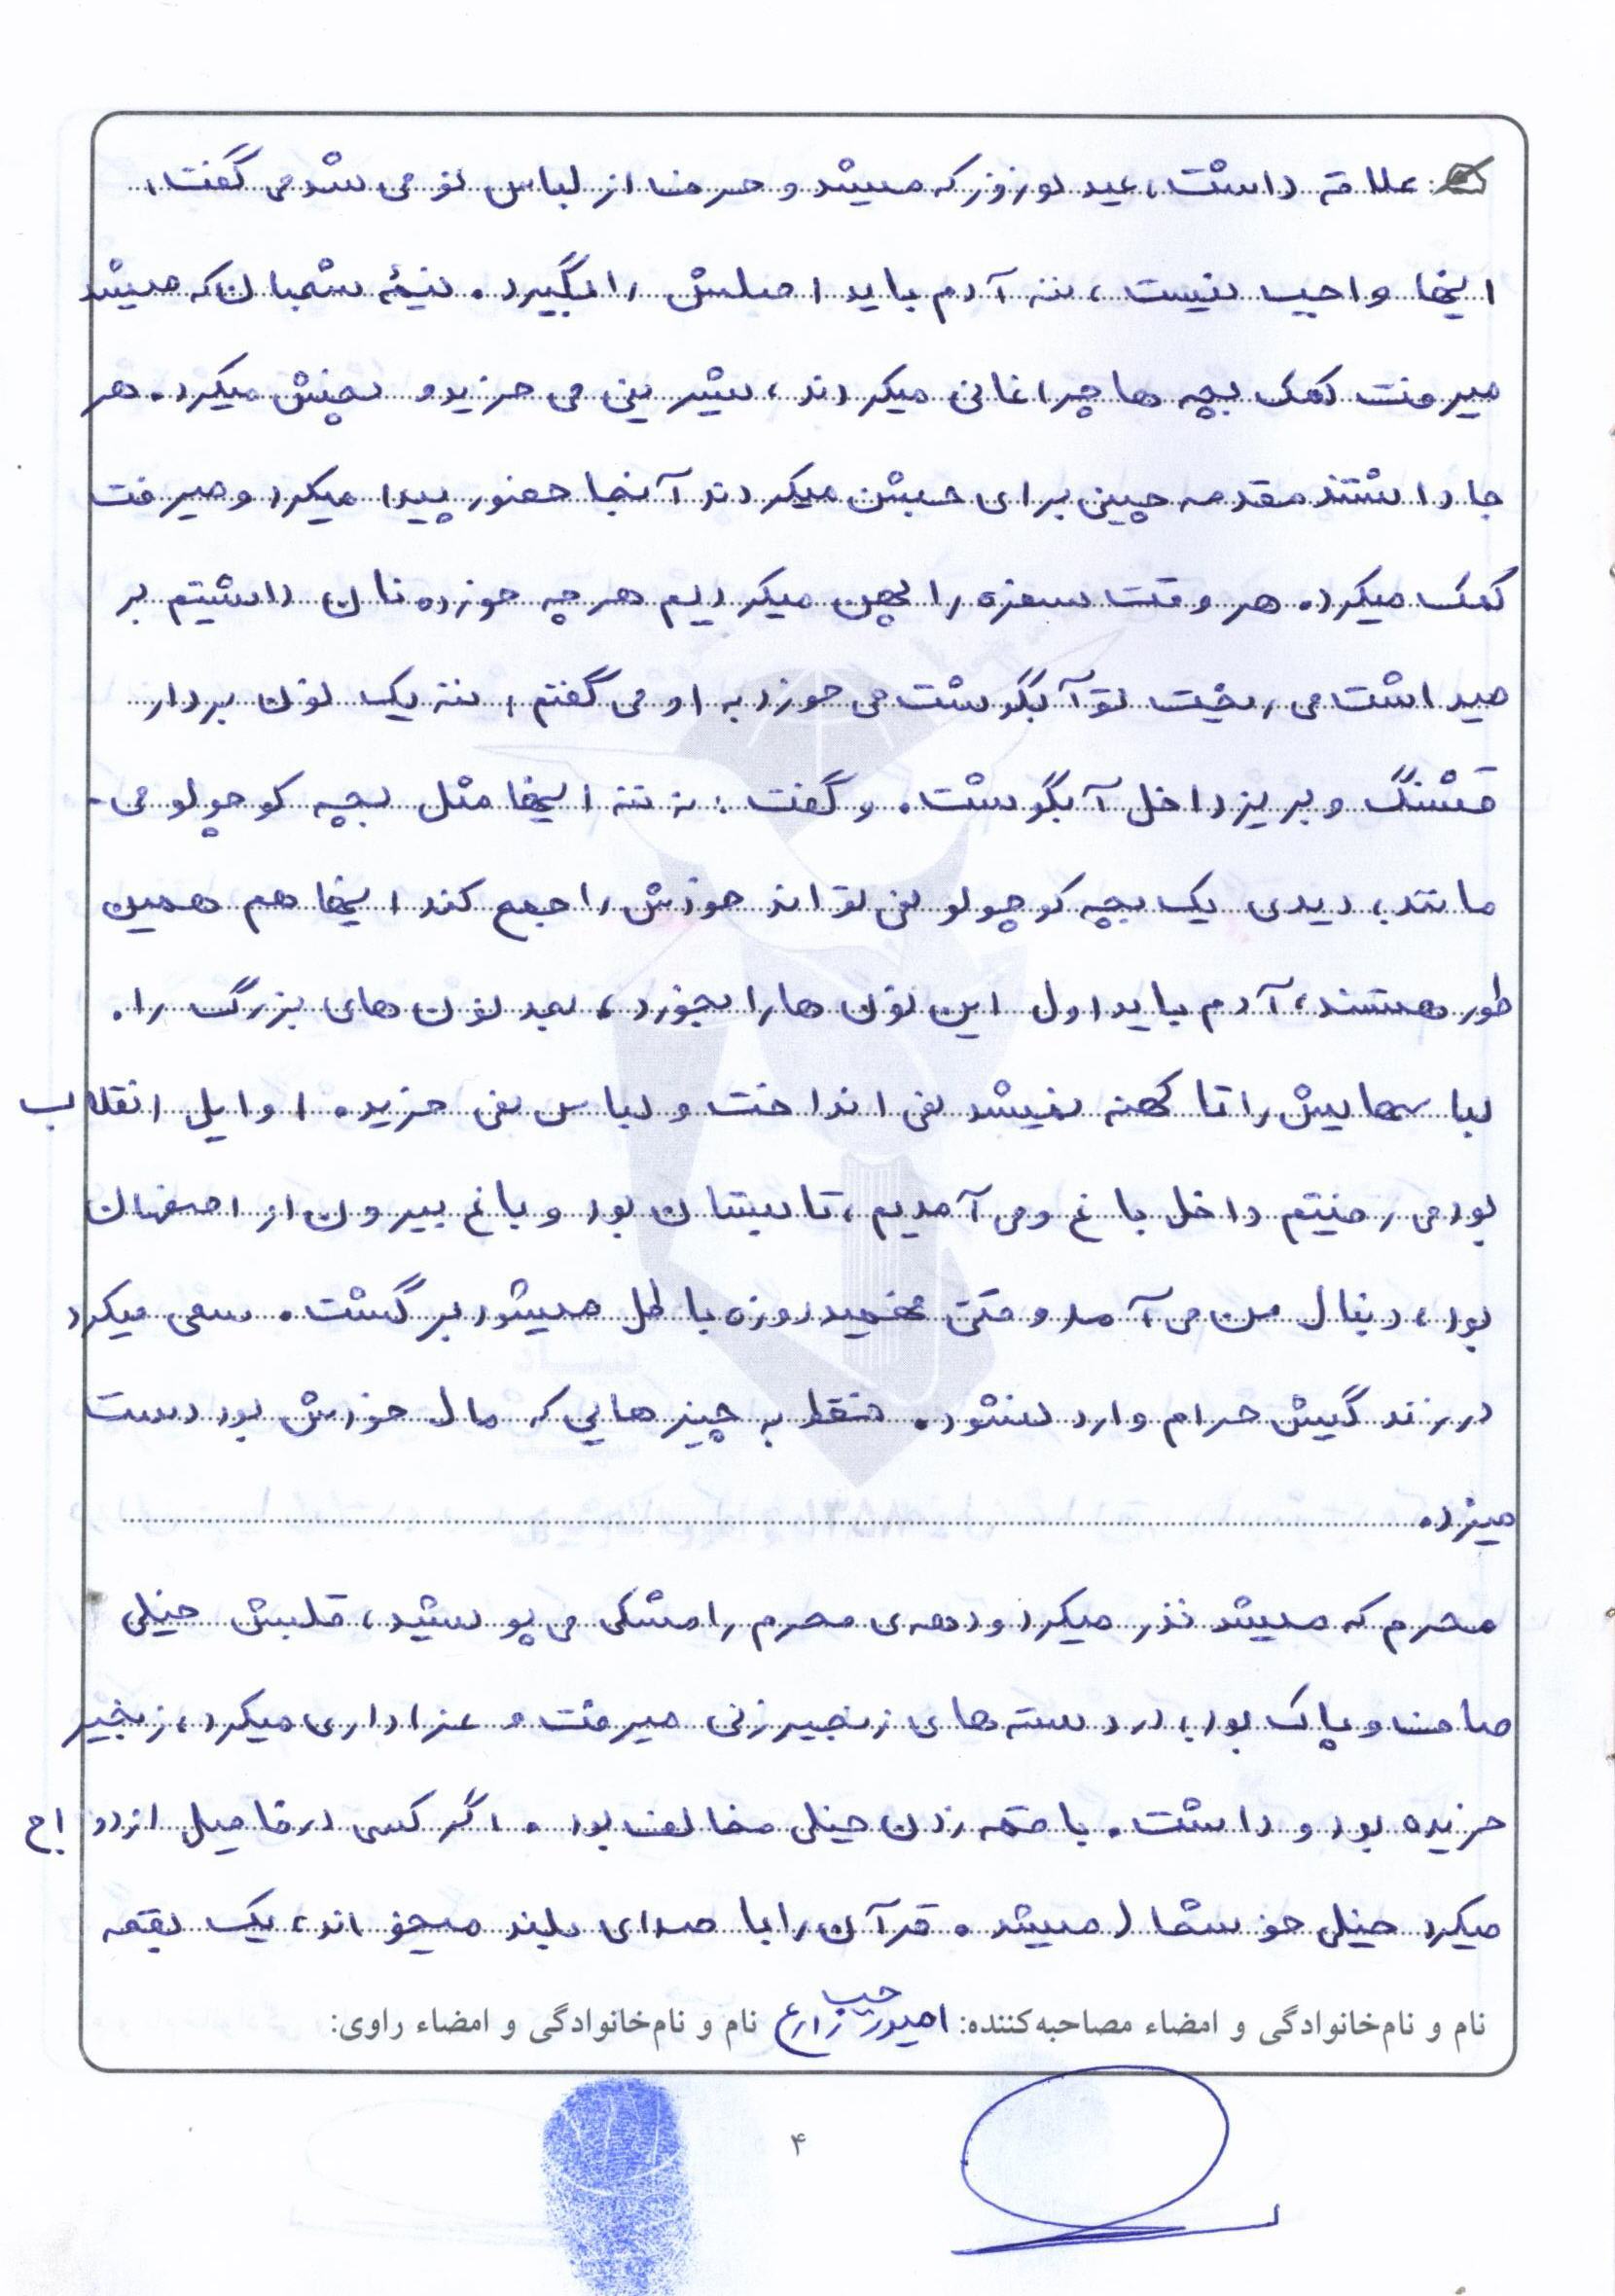 علاقه داشت، عید نوروز که میشد و حرف از لباس نو می شد می گفت:
اینها واجب نیست، ننه آدم باید اصلش را بگیرد. نیمهٔ شعبان که میشد
میرفت کمک بچه ها چراغانی میکردند، شیرینی می خرید و پخش میکرد. هر
جا داشتند مقدمه چینی برای جشن میکردند آنجا حضور پیدا میکرد و میرفت
کمک میکرد. هر وقت سفره را پهن میکردیم هر چه خورده نان داشتیم بر
میداشت می ریخت تو آبگوشت می خورد به او می گفتم: ننه یک نون بردار
قشنگ و بریز داخل آبگوشت. و گفت: نه ننه اینها مثل بچه کوچولو می-
مانند، دیدی یک بچه کوچولو نمی تواند خودش را جمع کند اینها هم همین
طور هستند، آدم باید اول این نون ها را بخورد، بعد نون های بزرگ را.
لباسهایش را تا کهنه نمیشد نمی انداخت و لباس نمی خرید. اوایل انقلاب
بود می رفتیم داخل باغ و می آمدیم، تابستان بود و باغ بیرون از اصفهان
بود، دنبال من می آمد وقتی فهمید روزه باطل میشود برگشت. سعی میکرد
در زندگیش حرام وارد نشود. فقط به چیزهایی که مال خودش بود دست
میزد.
محرم که میشد نذر میکرد و دهه ی محرم را مشکی می پوشید، قلبش خیلی
صاف و پاک بود، در دسته های زنجیر زنی میرفت و عزاداری میکرد، زنجیر
خریده بود و داشت. با قمه زدن خیلی مخالف بود. اگر کسی در فامیل ازدواج
میکرد خیلی خوشحال میشد. قرآن را با صدای بلند میخواند، یک بقعه
نام و نام‌خانوادگی و امضاء مصاحبه‌کننده: امیر حبیب زارع نام و نام‌خانوادگی و امضاء راوی:
۴